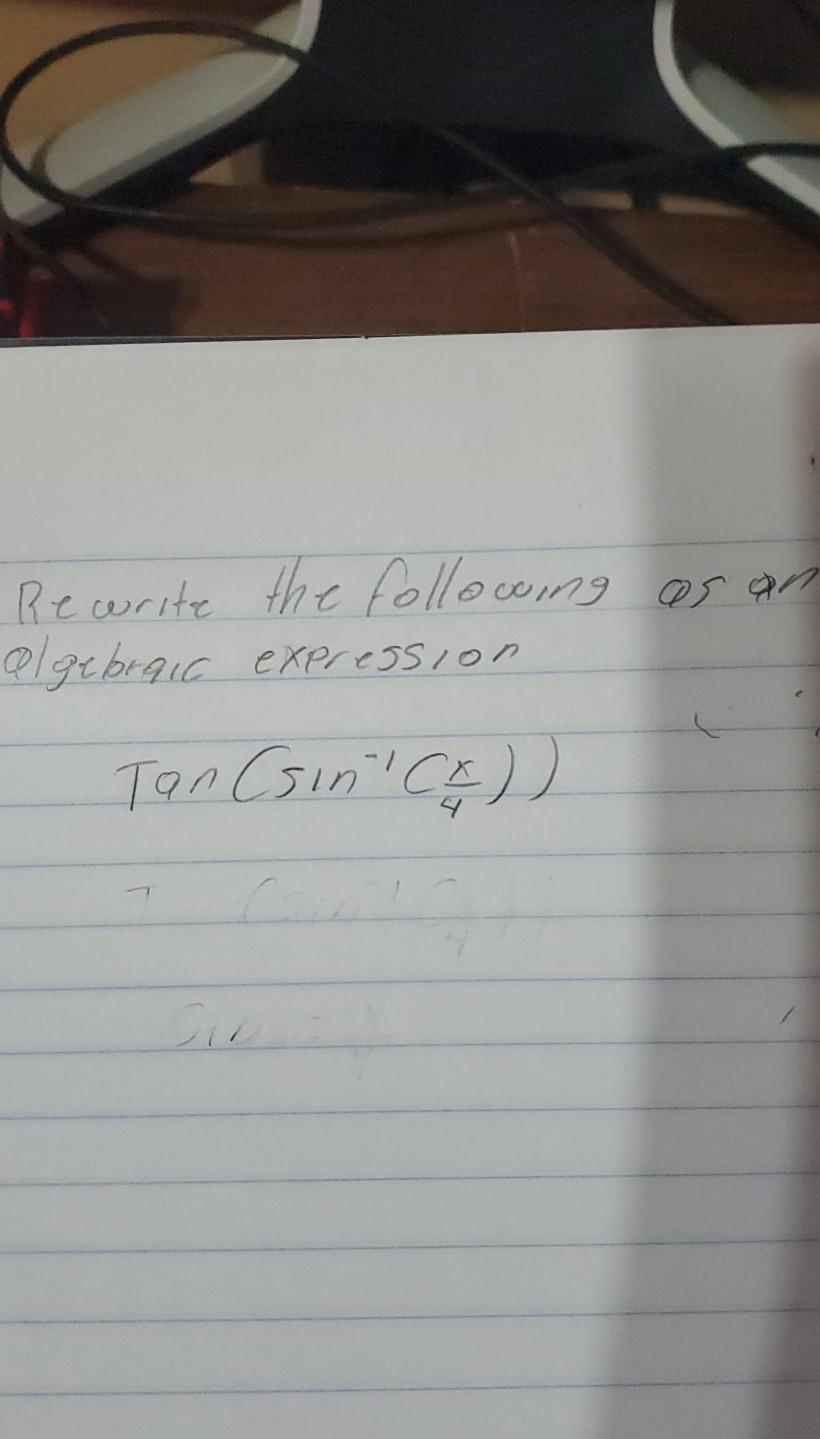 Rewrite the following as an
algebraic expression
Tan(sin⁻¹(x/4))
Tan(sin⁻¹(x/4))